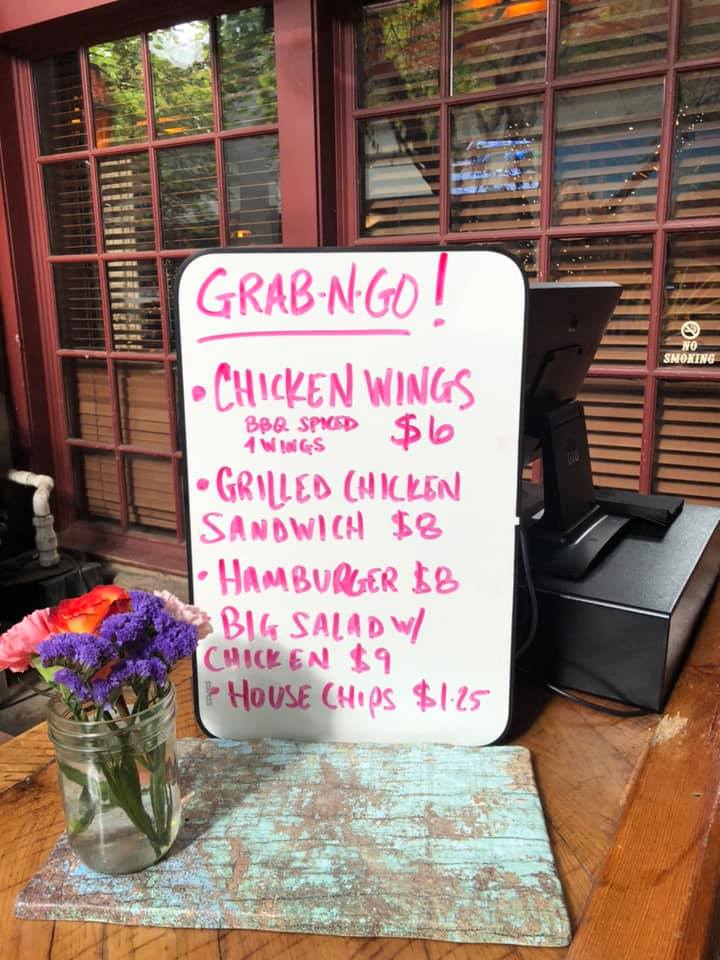 GRAB·N·GO!
• CHICKEN WINGS
BBQ SPICED $6
4 WINGS
• GRILLED CHICKEN
SANDWICH $8
• HAMBURGER $8
BIG SALAD W/
CHICKEN $9
• HOUSE CHIPS $1.25
NO
SMOKING